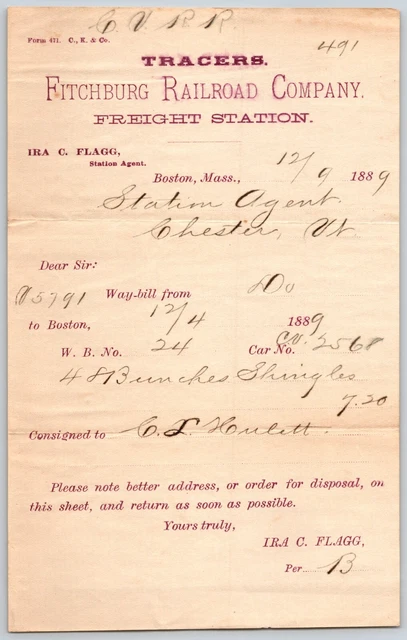 C. V. R R.
Form 471. C., K. & Co.
491
TRACERS.
FITCHBURG RAILROAD COMPANY.
FREIGHT STATION.
IRA C. FLAGG,
Station Agent.
Boston, Mass., 12/9 1889
Station Agent.
Chester, Vt
Dear Sir:
V5791 Way-bill from Do
to Boston, 12/4 1889
W. B. No. 24 Car No. CV. 2568
48 Bunches Shingles
7.20
Consigned to C. L Hulett.
Please note better address, or order for disposal, on
this sheet, and return as soon as possible.
Yours truly,
IRA C. FLAGG,
Per B